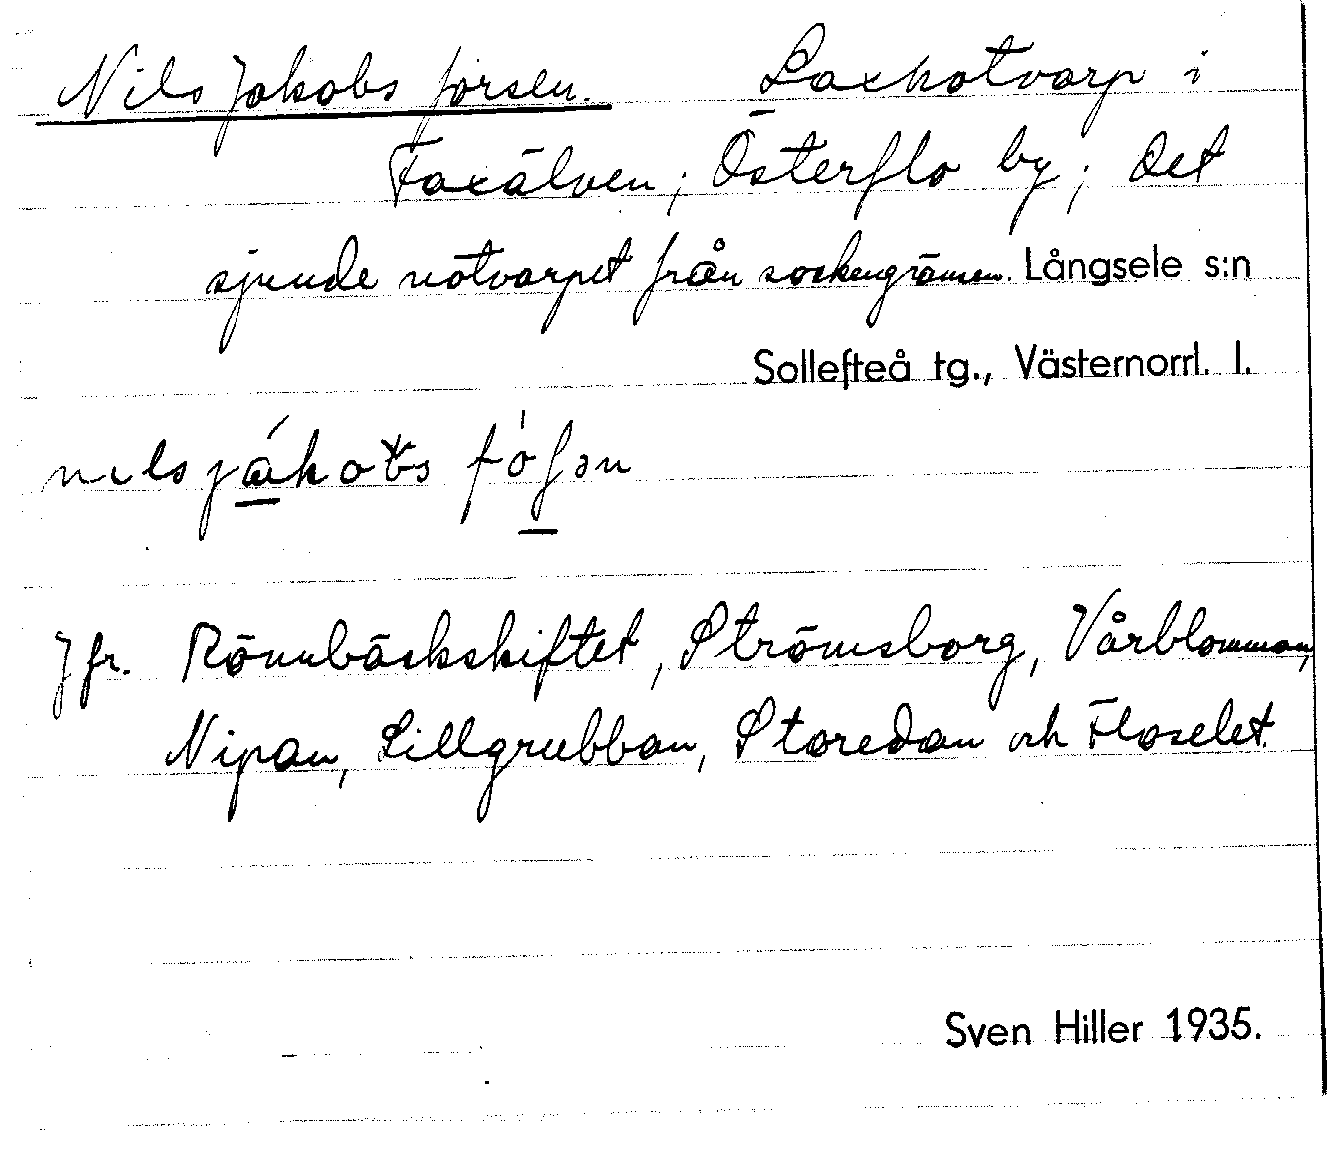 Nils Jakobs forsen. Laxnotvarp i
Faxälven; Österflo by; det
sjunde notvarpet från sockengränsen. Långsele s:n
Sollefteå tg., Västernorrl. l.
Jfr. Rönnbäckskiftet, Strömsborg, Vårblomman,
Nipan, Lillgrubban, Staredan och Floselet.
Sven Hiller 1935.